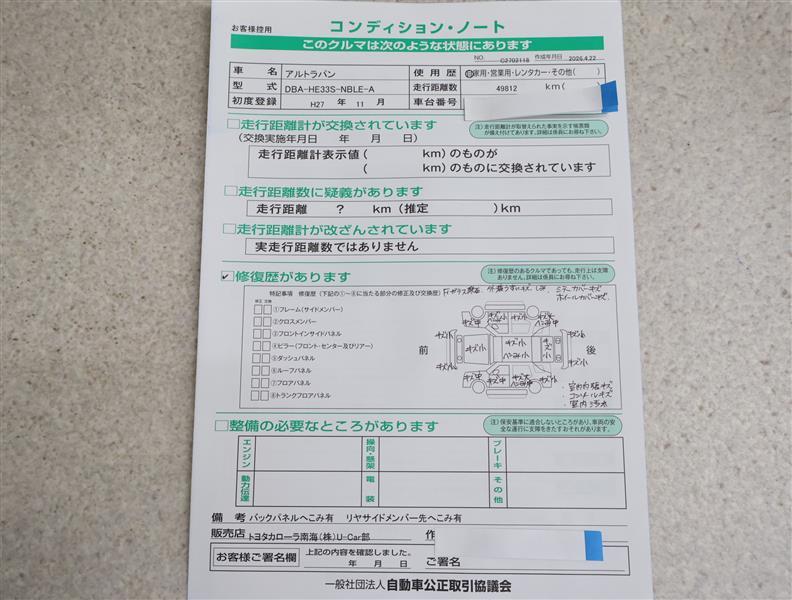 お客様控用
コンディション・ノート
このクルマは次のような状態にあります
NO. C2702118 作成年月日 2026.4.22
車名 アルトラパン 使用歴 自家用・営業用・レンタカー・その他( )
型式 DBA-HE33S-NBLE-A 走行距離数 49812 km( )
初度登録 H27 年 11 月 車台番号
走行距離計が交換されています
注)走行距離計が取替えられた事実を示す帳票類が備え付けてあります。詳細は係員にお尋ね下さい。
(交換実施年月日 年 月 日)
走行距離計表示値( km)のものが
( km)のものに交換されています
走行距離数に疑義があります
走行距離 ? km(推定 )km
走行距離計が改ざんされています
実走行距離数ではありません
✓修復歴があります
注)修復歴のあるクルマであっても、走行上は支障ありません。詳細は係員にお尋ね下さい。
特記事項 修復歴(下記の①~⑧に当たる部分の修正及び交換歴)
修正 交換
①フレーム(サイドメンバー)
②クロスメンバー
③フロントインサイドパネル
④ピラー(フロント・センター及びリアー)
⑤ダッシュパネル
⑥ルーフパネル
⑦フロアパネル
⑧トランクフロアパネル
ミラーカバーキズ
ホイールカバーキズ
前
後
キズ小
キズ中
室内汚れ
整備の必要なところがあります
注)保安基準に適合しないところがあり、車両の安全な運行に支障をきたすおそれがあります。
エンジン 操向・懸架 ブレーキ
動力伝達 電装 その他
備考 バックパネルへこみ有 リヤサイドメンバー先へこみ有
販売店 トヨタカローラ南海(株)U-Car部 作
お客様ご署名欄 上記の内容を確認しました。
年 月 日 ご署名
一般社団法人 自動車公正取引協議会